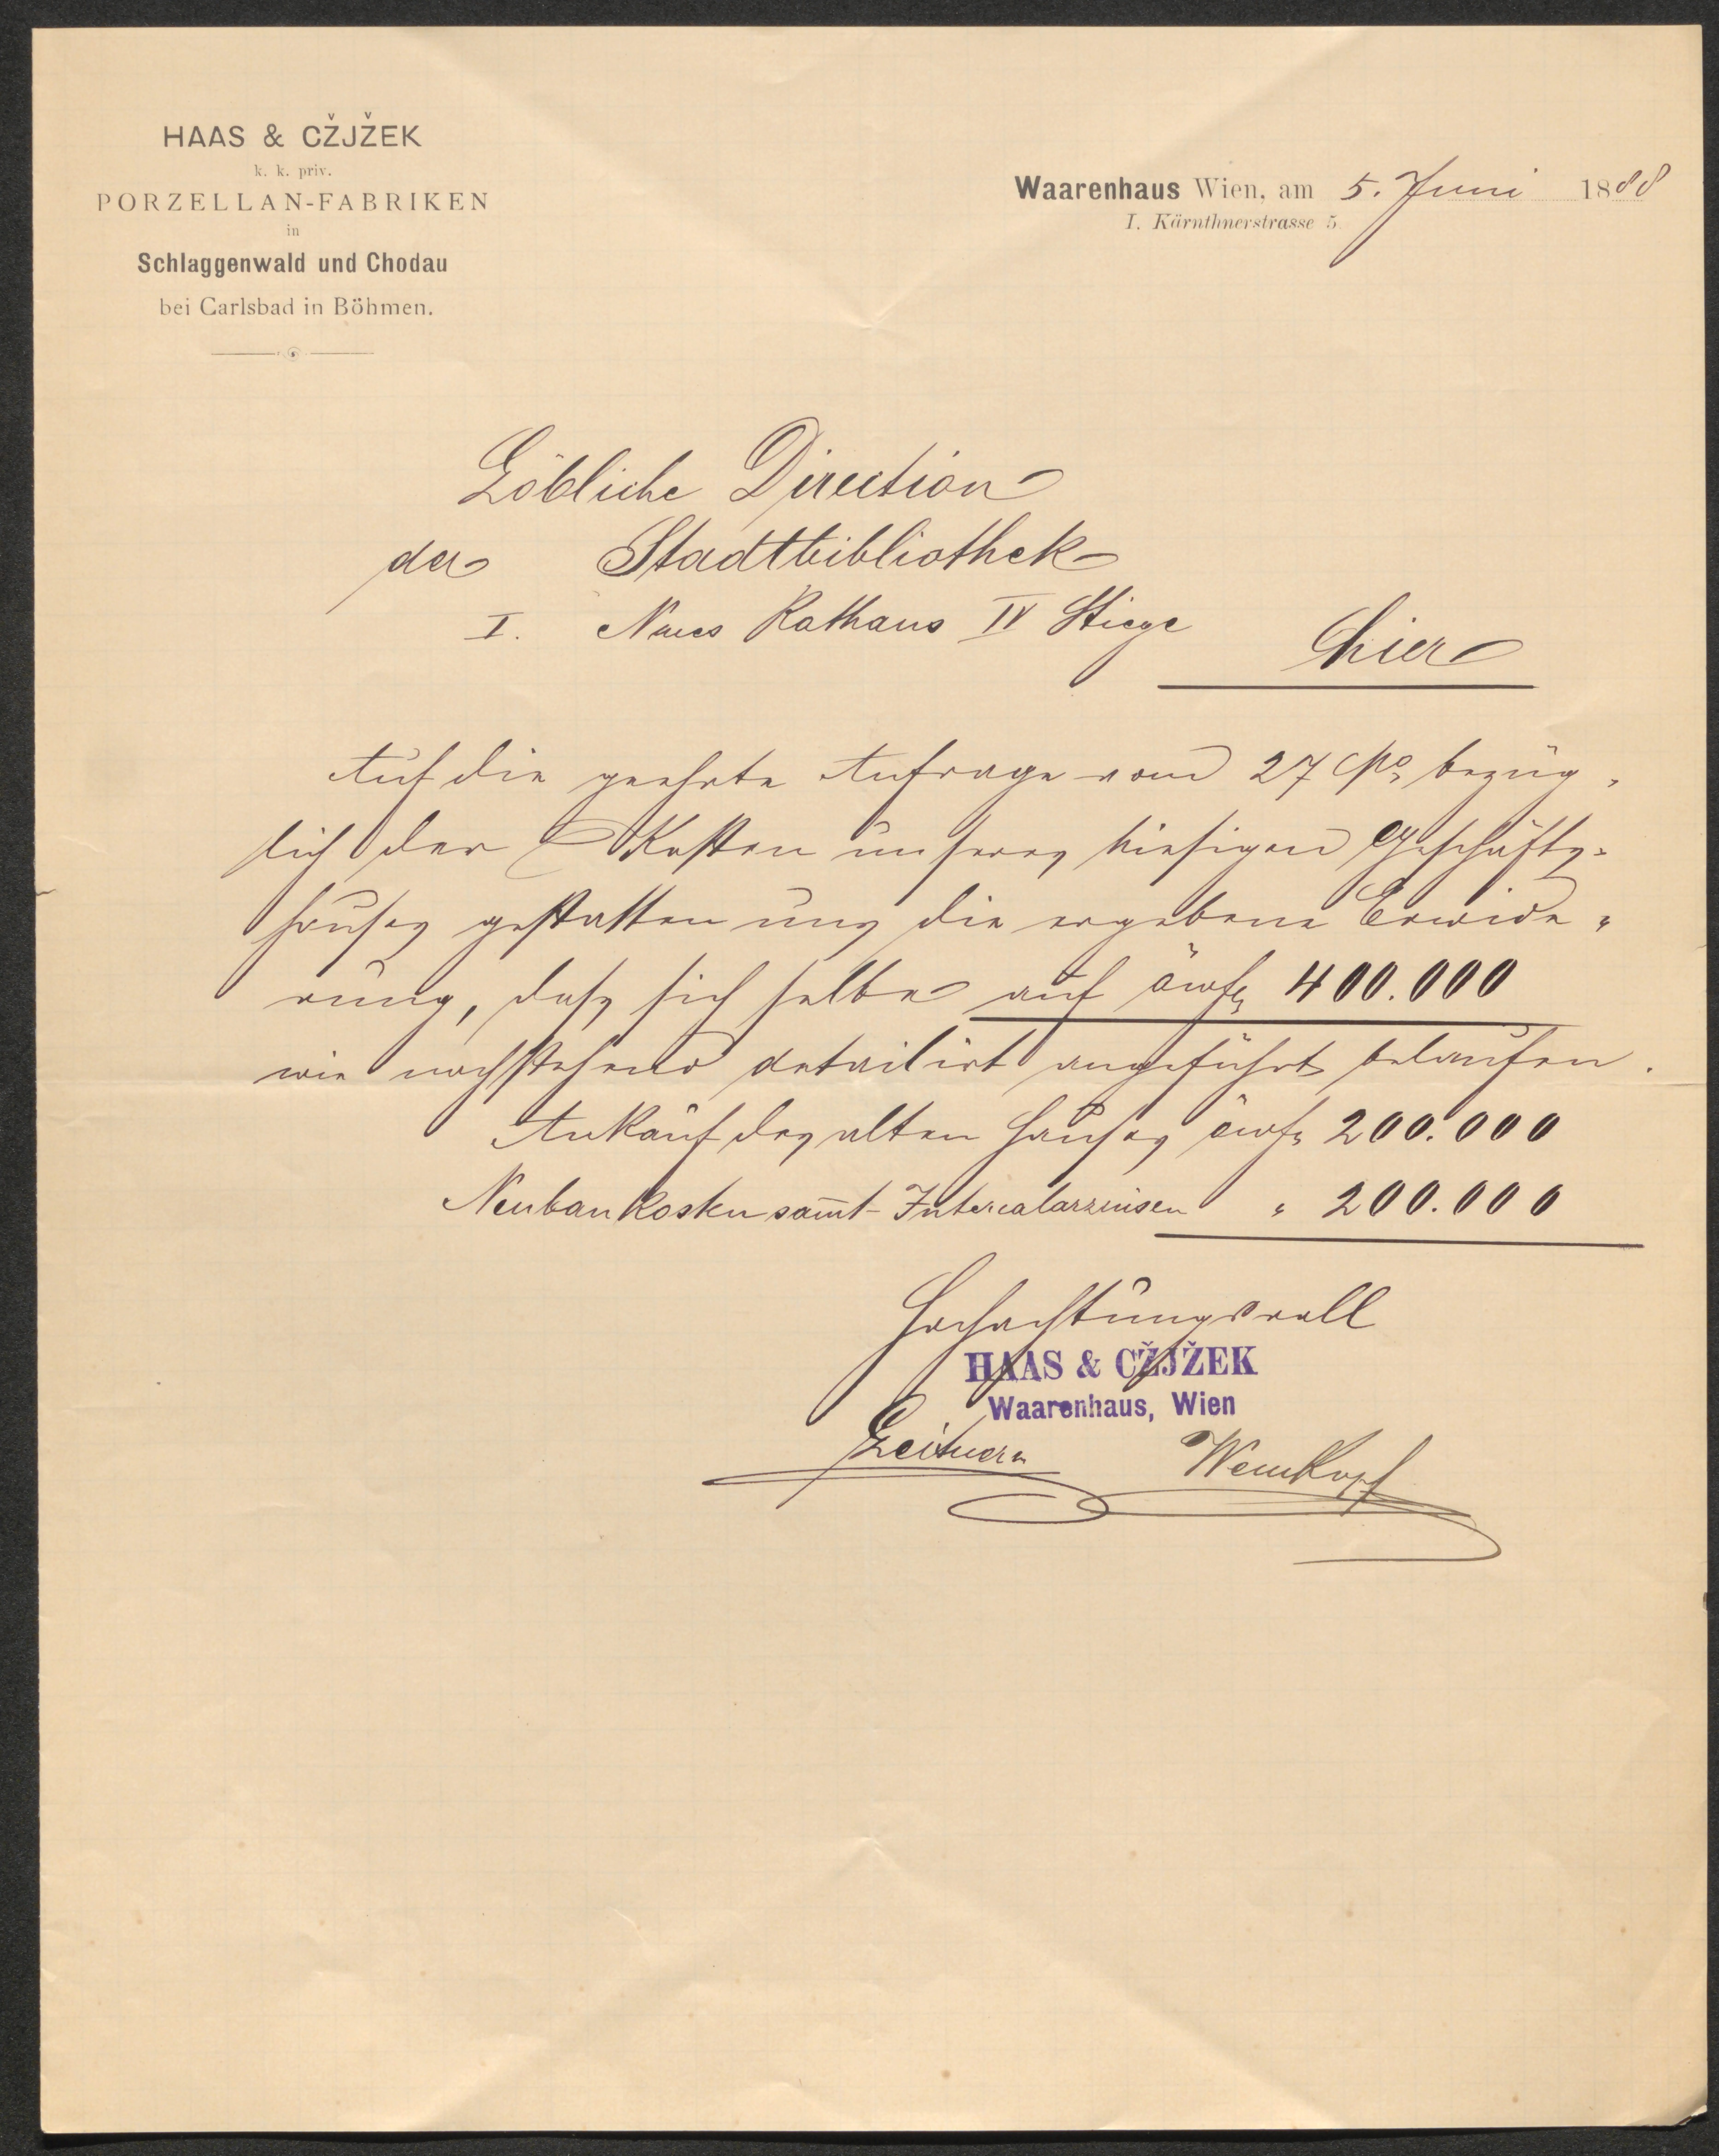 HAAS & CŽJŽEK
k. k. priv.
PORZELLAN-FABRIKEN
in
Schlaggenwald und Chodau
bei Carlsbad in Böhmen.
Waarenhaus Wien, am 5. Juni 1888
I. Kärnthnerstrasse 5.
Löbliche Direction
der Stadtbibliothek
I. Neues Rathaus IV Stiege
hier
Auf die geehrte Anfrage vom 27 bezüg-
lich der Kosten unseres hiesigen Geschäfts-
hauses gestatten uns die ergebene Erwide-
rung, daß sich selbe auf öwf 400.000
wie nachstehend detailirt angeführt belaufen.
Ankauf des alten Hauses öwf 200.000
Neubaukosten sam̄t Intercalarzinsen " 200.000
Hochachtungsvoll
HAAS & CŽJŽEK
Waarenhaus, Wien